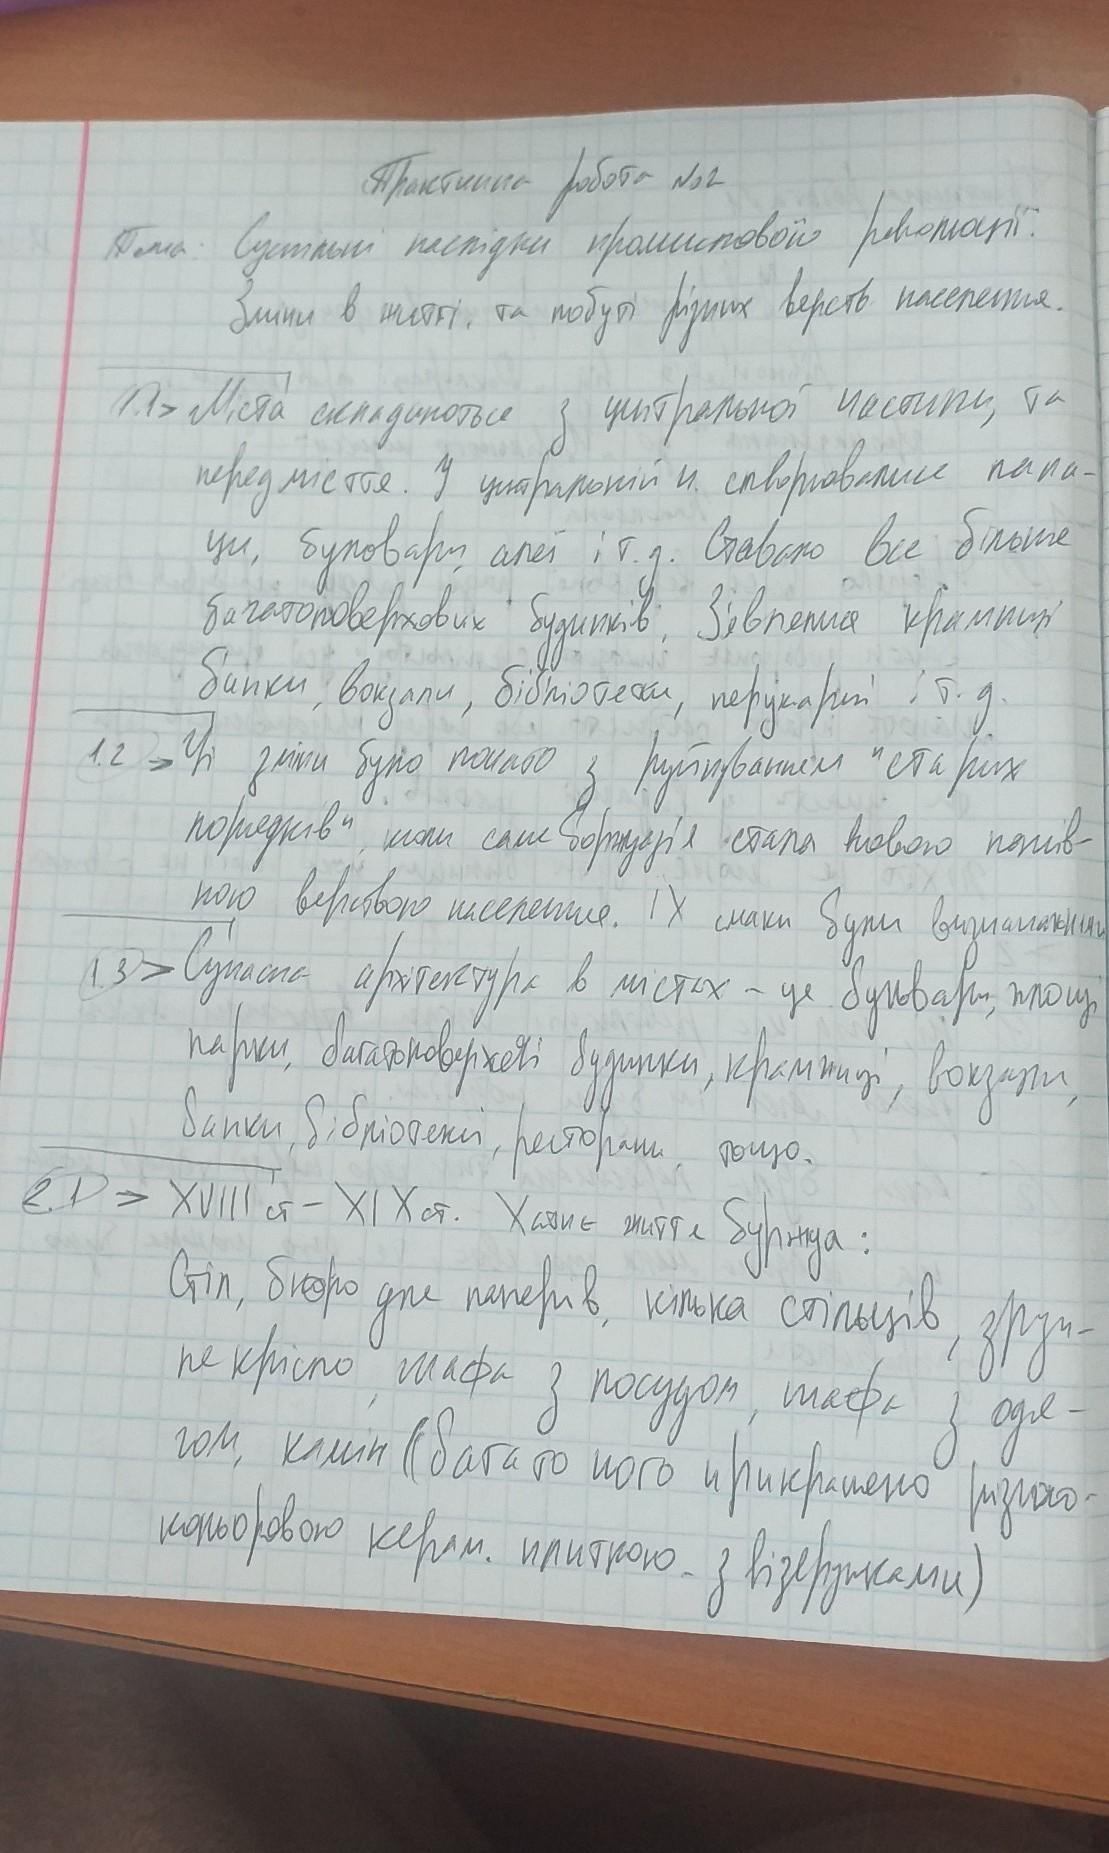 Практична робота №2
Тема: Суспільні наслідки промислової революції.
Зміни в житті та побуті різних верств населення.
1.1> Міста складаються з цитральної частини, та
передмістя. У цитральній ч. створювалися пала-
ци, буловари, алеї і т.д. Ставало все більше
багатоповерхових будинків. Зівлення крамниці
банки, вокзали, бібліотеки, перукарні і т.д.
1.2 > Ці зміни було почато з руйнуванням "старих
порядків", коли саме боржуазія стала новою панів-
ною верствою населення. ЇХ смаки були визначними
1.3 > Сучасна архітектура в містах - це бульвари, площі
парки, багатоповерхові будинки, крамниці, вокзали,
банки, бібліотеки, ресторани, тощо.
2.1 > XVIII ст - XIX ст. Хатнє життя буржуа:
Стіл, бюро для паперів, кілька стільців, зруч-
не крісло, шафа з посудом, шафа з одя-
гом, камін (багато чого прикрашено різно-
кольоровою керам. плиткою з візерунками)